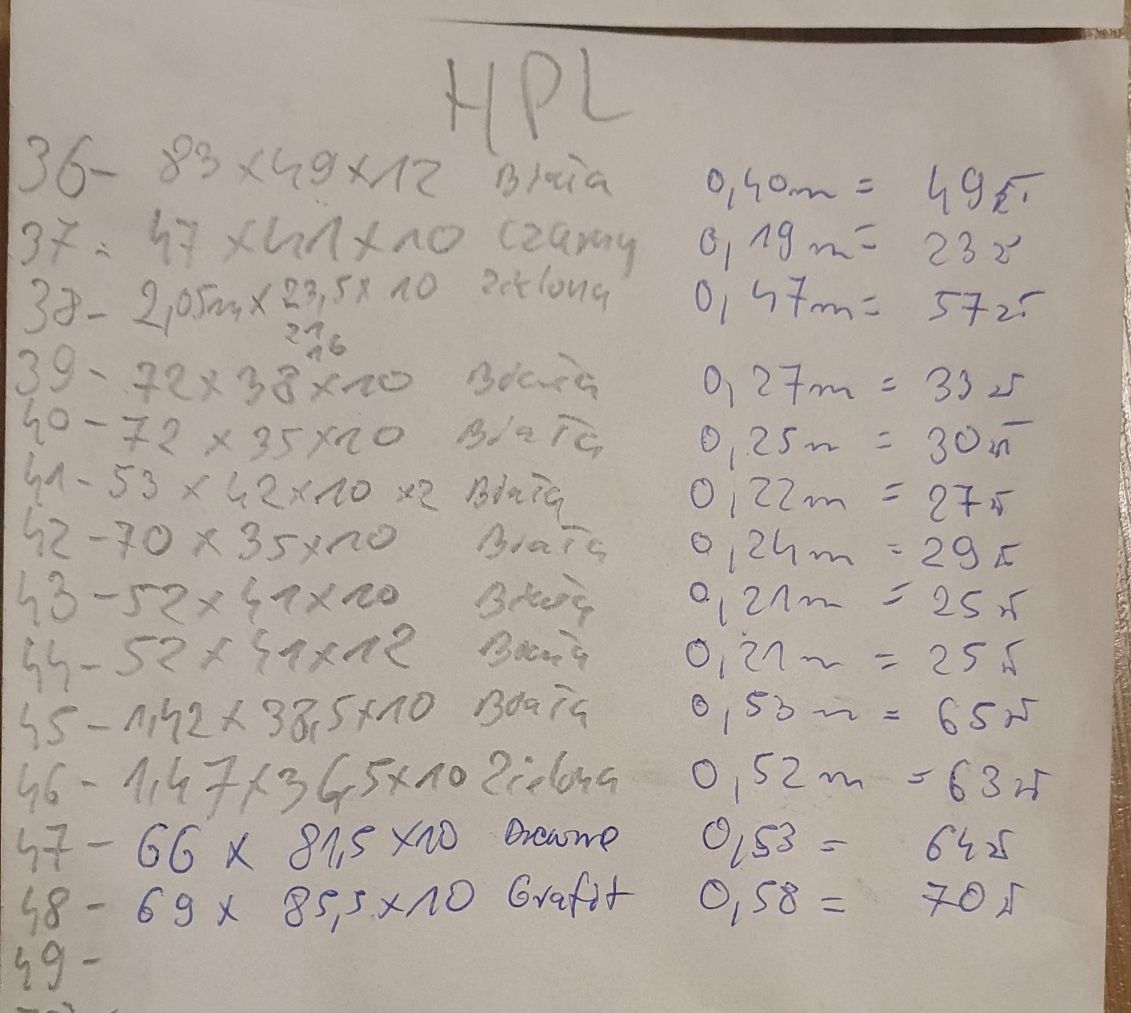 HPL
36- 83 x 49 x 12 Biała 0,40m = 49zł
37- 47 x 41 x 10 Czarny 0,19m = 23zł
38- 2,05m x 23,5 x 10 Zielona 0,47m = 57zł
21
16
39- 72 x 38 x 10 Biała 0,27m = 33zł
40- 72 x 35 x 10 Biała 0,25m = 30zł
41- 53 x 42 x 10 x2 Biała 0,22m = 27zł
42- 70 x 35 x 10 Biała 0,24m = 29zł
43- 52 x 41 x 10 Biała 0,21m = 25zł
44- 52 x 41 x 12 Biała 0,21m = 25zł
45- 1,42 x 38,5 x 10 Biała 0,53m = 65zł
46- 1,47 x 36,5 x 10 Zielona 0,52m = 63zł
47- 66 x 81,5 x 10 0,53 = 64zł
48- 69 x 85,5 x 10 Grafit 0,58 = 70zł
49-